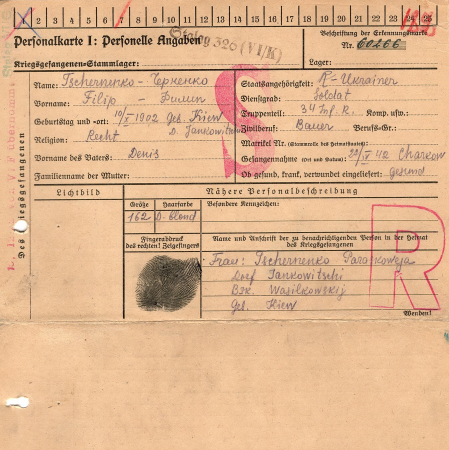 1 2 3 4 5 6 7 8 9 10 11 12 13 14 15 16 17 18 19 20 21 22 23 24 25
Personalkarte I: Personelle Angaben
Stalag 326 (VI/K)
Beschriftung der Erkennungsmarke
Nr. 60266
Kriegsgefangenen-Stammlager:
Lager:
Des Kriegsgefangenen
Name: Tschernenko - Черненко
Vorname: Filip - Филип
Geburtstag und -ort: 10/V 1902 Geb. Kiew
D. Jankowitschi
Religion: Recht
Vorname des Vaters: Denis
Familienname der Mutter:
Staatsangehörigkeit: R-Ukrainer
Dienstgrad: Soldat
Truppenteil: 34 Inf. R. Komp. usw.:
Zivilberuf: Bauer Berufs-Gr.:
Matrikel Nr. (Stammrolle des Heimatstaates):
Gefangennahme (Ort und Datum): 22/V 42 Charkow
Ob gesund, krank, verwundet eingeliefert: gesund
S
Lichtbild
Nähere Personalbeschreibung
Größe Haarfarbe
162 D. blond
Besondere Kennzeichen:
Fingerabdruck
des rechten! Zeigefingers
Name und Anschrift der zu benachrichtigenden Person in der Heimat
des Kriegsgefangenen
Frau: Tschernenko Paraskoweja
Dorf Jankowitschi
Bzk. Wasilkowskij
Geb. Kiew
R
Wenden!